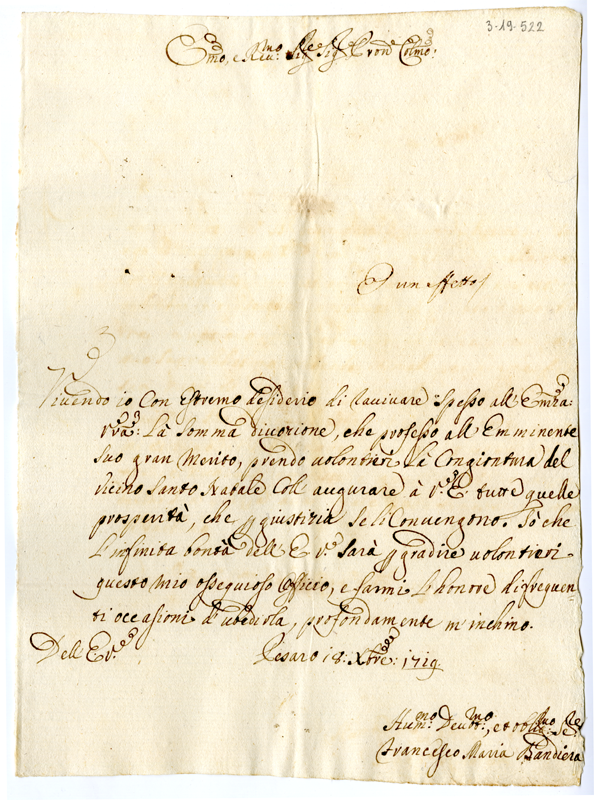 3-19-522
Emo, e Rmo: Sig.re Sig.re Pron Colmo:
un effetto
Vivendo io Con Estremo desiderio di ravivare spesso all' Emza:
vra: Là somma divozione, che professo all Emminente
suo gran Merito, prendo volontieri Là Congiontura del
vicino Santo Natale Coll augurare à V.E. tutte quelle
prosperità, che p giustizia se li Convengono. Sò che
L'infinita bontà dell E v.a sarà p gradire volontieri
questo mio ossequioso officio, e farmi L'honore di frequen
ti occasioni d' ubidirla, profondamente m' inchino.
Dell E v.a
Pesaro 18: Xbre: 1719
Hum:mo Devtt:mo, et obblig:mo Se.re
Francesco Maria Bandiera